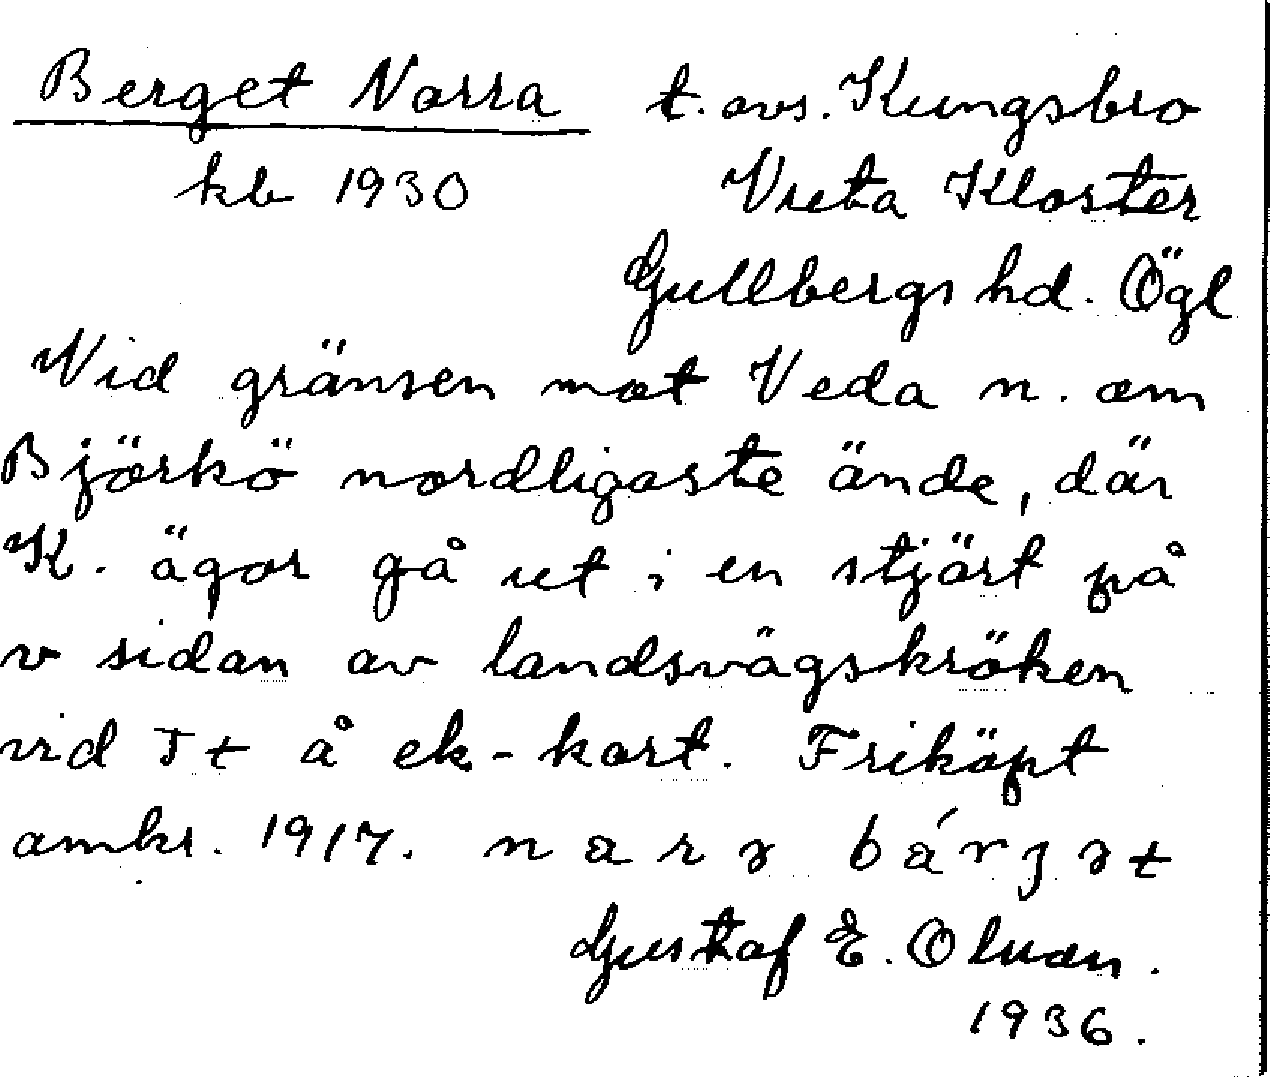 Berget Norra t. avs. Kungsbro
kb 1930 Vreta Kloster
Gullbergs hd. Ögl
Vid gränsen mot Veda n. om
Björkö nordligaste ände, där
K. ägor gå ut i en stjärt på
v sidan av landsvägskröken
vid Tt å ek-kart. Friköpt
omkr. 1917. narə bárjət
Gustaf E. Olson.
1936.